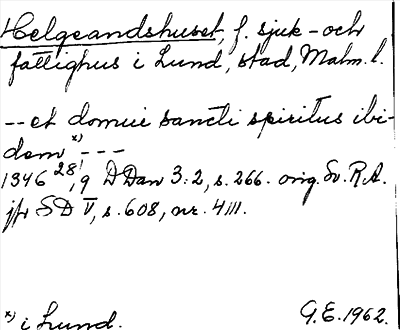 Helgeandshuset, f. sjuk- och
fattighus i Lund, stad, Malm. l.
-- et domui sancti spiritus ibi-
dem x) ---
1346 28/9 DDan 3:2, s. 266. orig. Sv. R.A.
jfr SD V, s. 608, nr. 4111.
x) i Lund.
G.E. 1962.